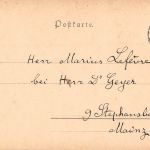 Postkarte.
Herr Marius Lefèvre
bei Herr Dr Geyer
9 Stephansbe
Mainz